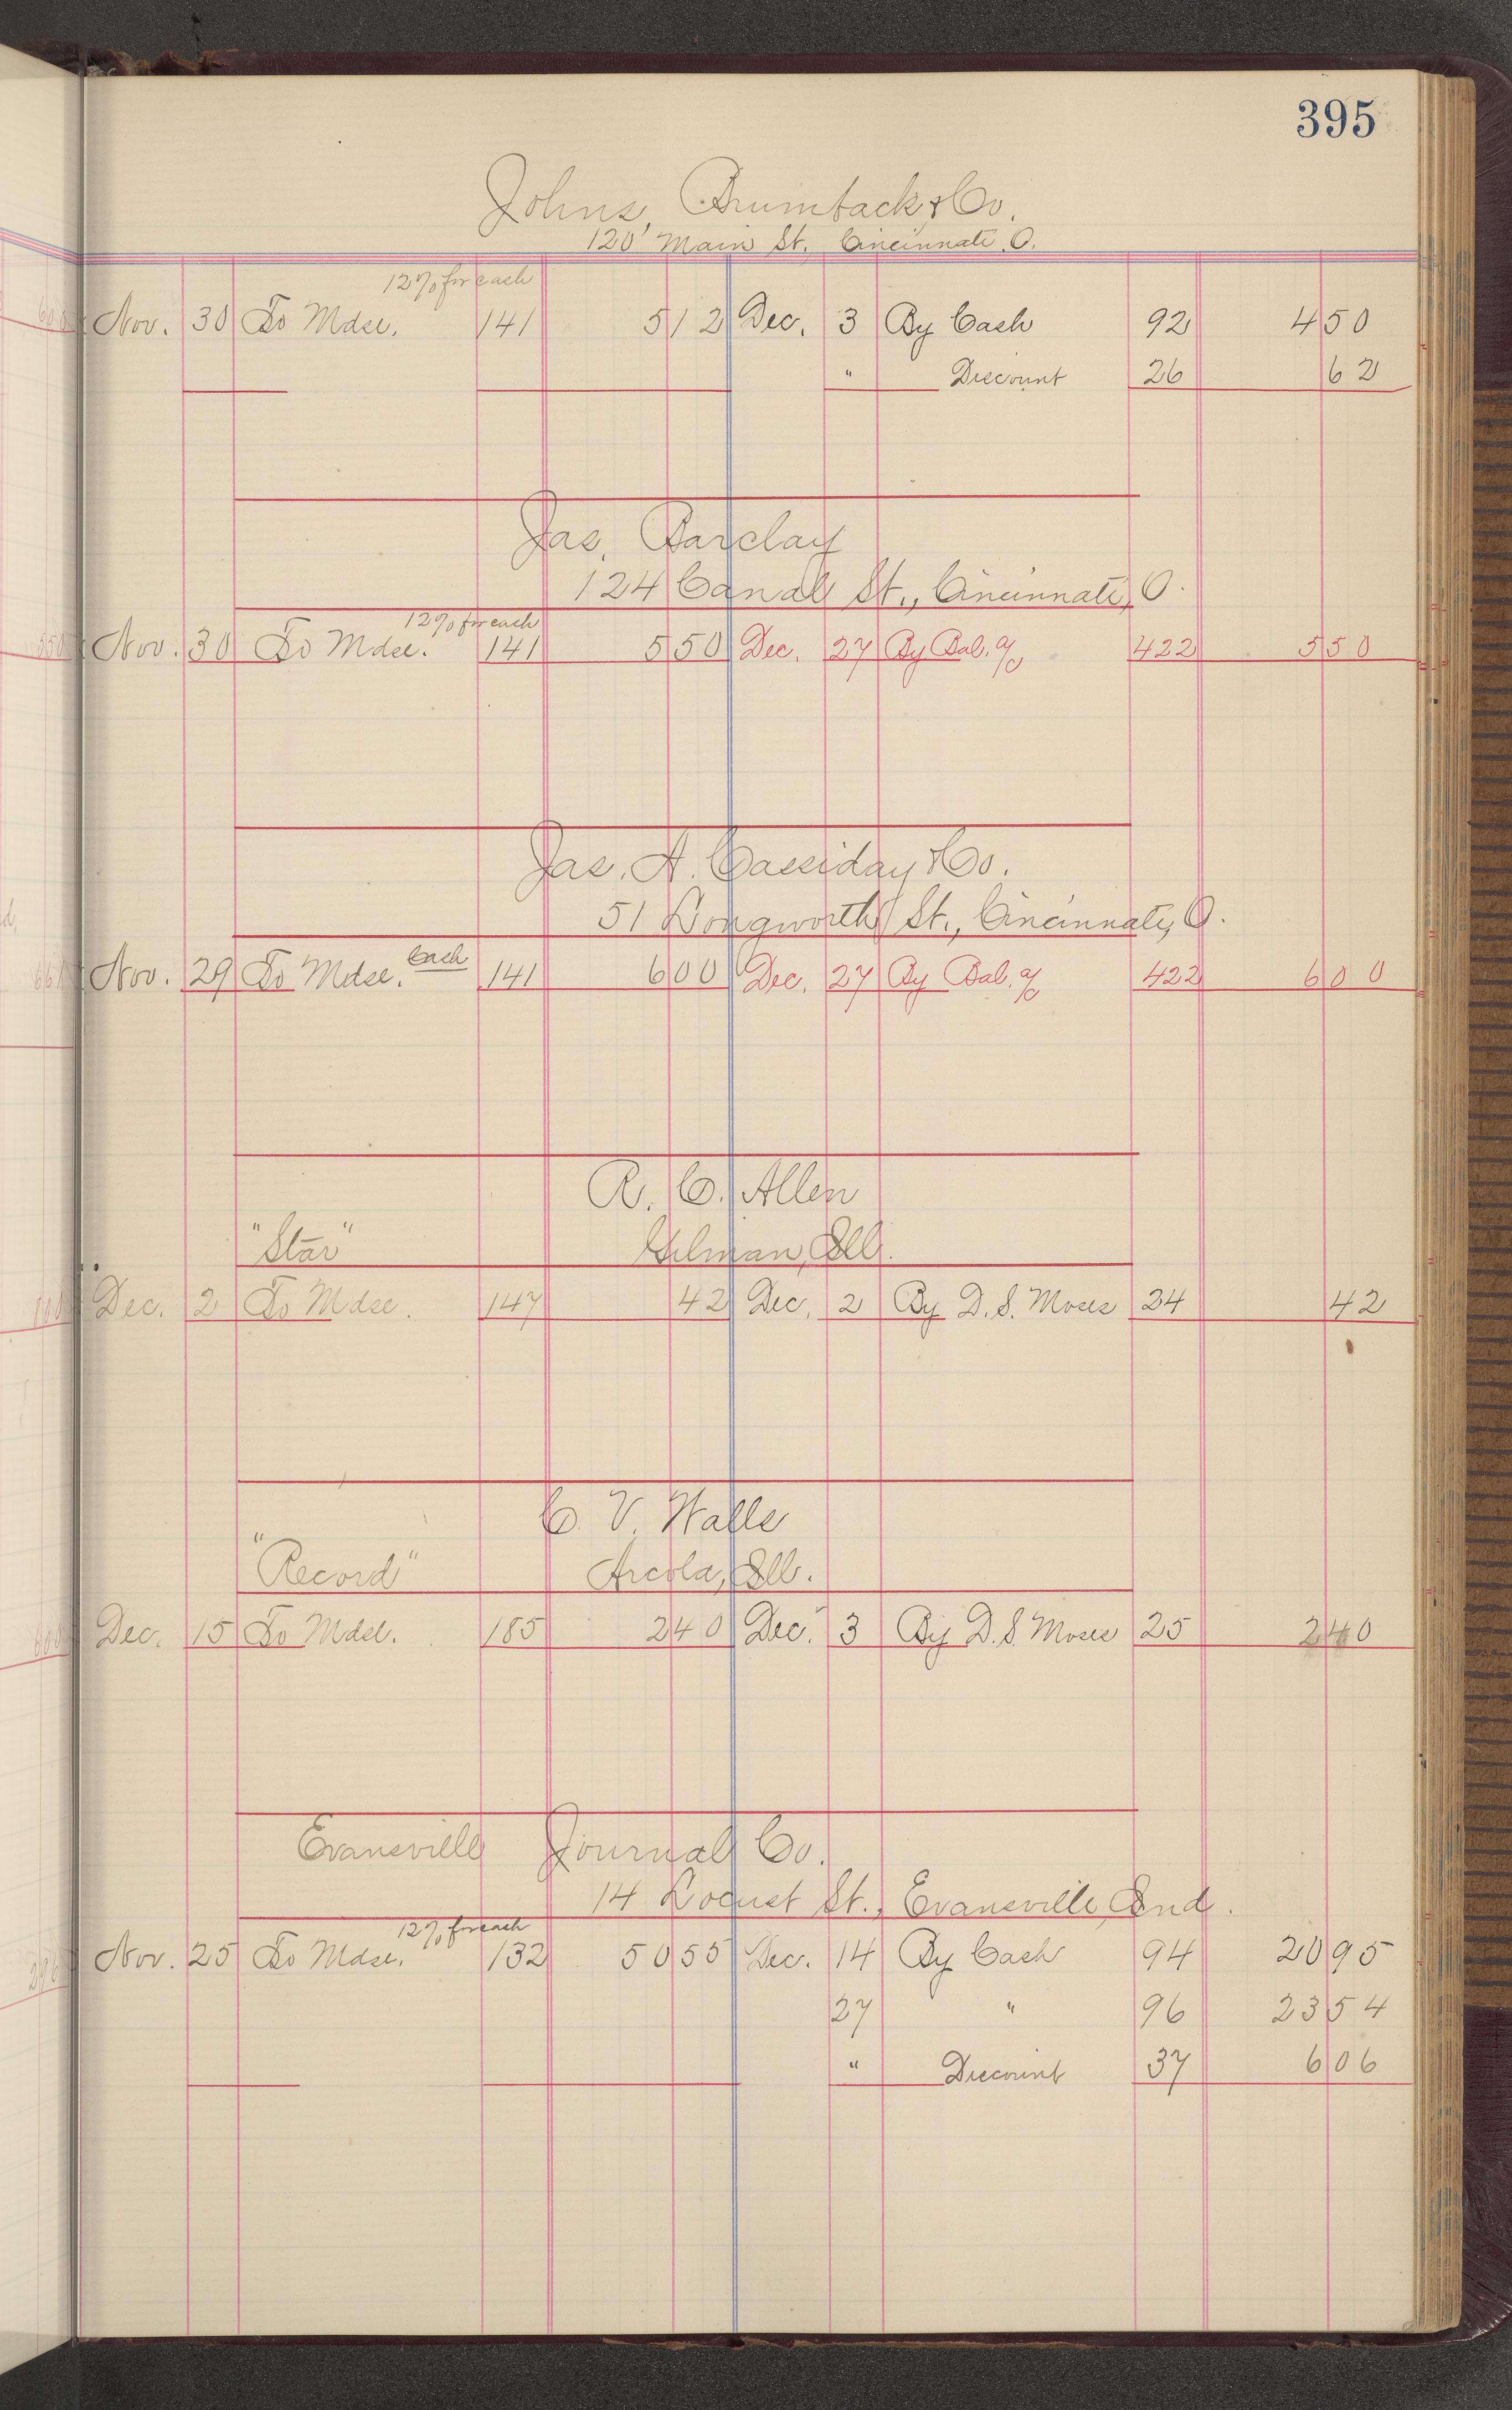 395
Johns, Brumback & Co.
120 Main St., Cincinnati, O.
12% for cash
Nov. 30 To Mdse. 141 5 12 Dec. 3 By Cash 92 4 50
" Discount 26 62
Jas. Barclay
124 Canal St., Cincinnati, O.
12% for cash
550 Nov. 30 To Mdse. 141 5 50 Dec. 27 By Bal. a/c 422 5 50
Jas. A. Cassiday & Co.
51 Longworth St., Cincinnati, O.
Nov. 29 To Mdse. Cash 141 6 00 Dec. 27 By Bal. a/c 422 6 00
R. C. Allen
"Star" Gilman, Ill.
Dec. 2 To Mdse. 147 42 Dec. 2 By D. S. Moses 24 42
C. V. Walls
"Record" Arcola, Ill.
Dec. 15 To Mdse. 185 2 40 Dec. 3 By D. S. Moses 25 2 40
Evansville Journal Co.
14 Locust St., Evansville, Ind.
12% for cash
Nov. 25 To Mdse. 132 50 55 Dec. 14 By Cash 94 20 95
27 " 96 23 54
" Discount 37 6 06